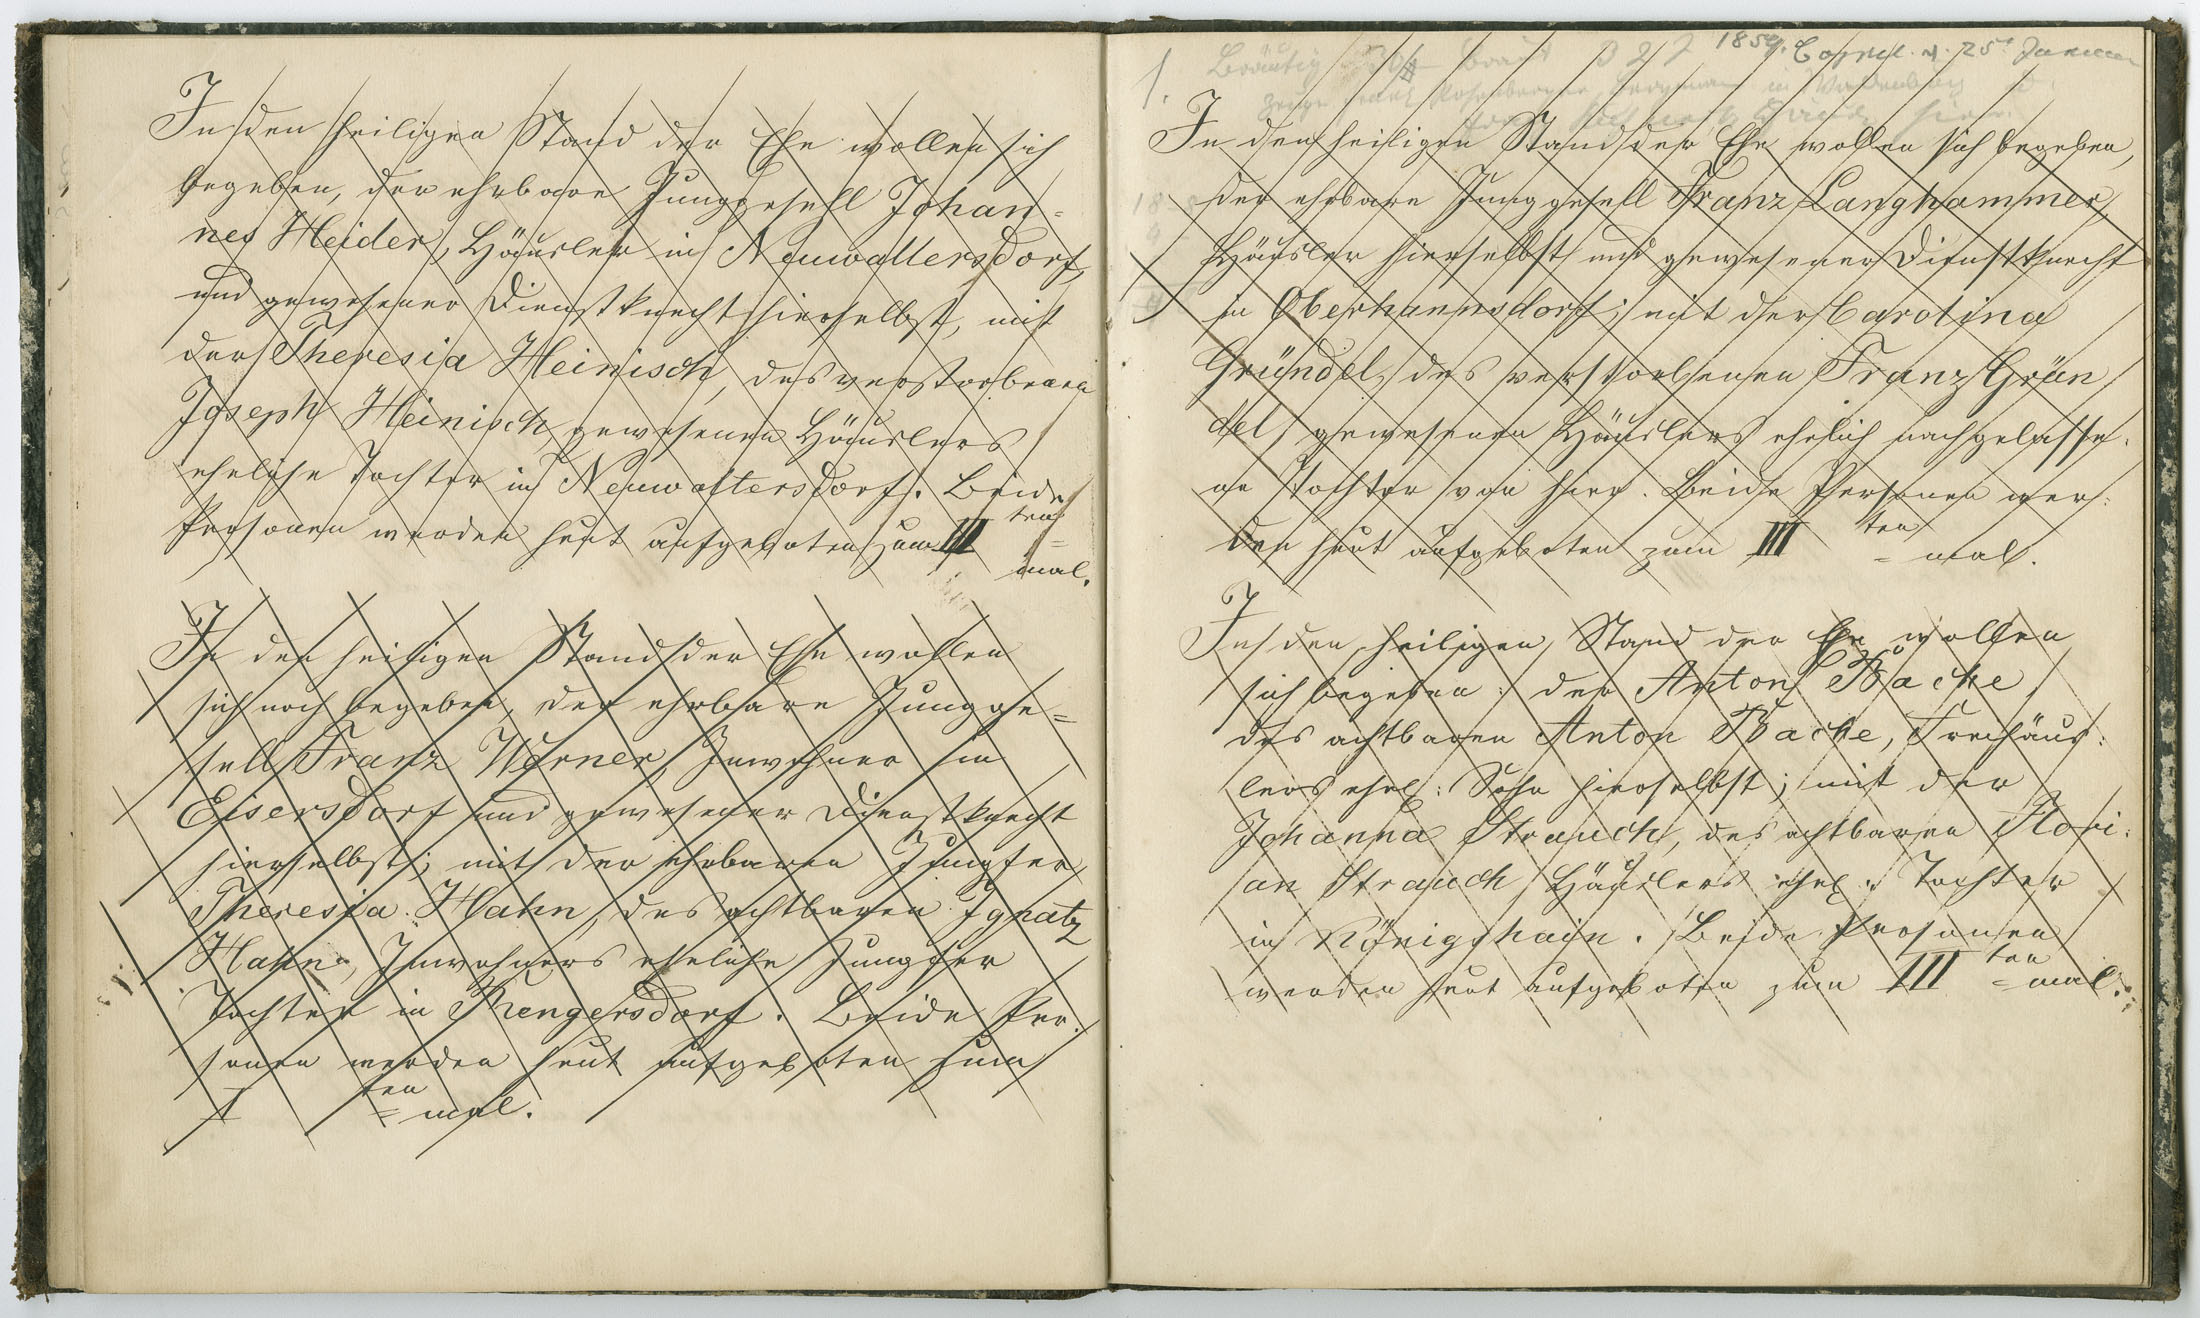 In den heiligen Stand der Ehe wollen sich
begeben, der ehrbare Junggesell Johan-
nes Heider, Häusler in Neuwaltersdorf,
und gewesener Dienstknecht hierselbst, mit
der Theresia Heinisch, des verstorbenen
Joseph Heinisch gewesenen Häuslers
eheliche Tochter in Neuwaltersdorf. Beide
Personen werden heut aufgeboten zum III ten=
mal.
In den heiligen Stand der Ehe wollen
sich noch begeben, der ehrbare Jungge=
sell Franz Werner, Inwohner in
Eisersdorf und gewesener Dienstknecht
hierselbst; mit der ehrbaren Jungfer
Theresia Hahn, des achtbaren Ignatz
Hahn, Inwohners eheliche Jungfer
Tochter in Rengersdorf. Beide Per:
sonen werden heut aufgeboten zum
I ten= mal.
1. Bräutig Braut 1859. Copul. d. 25t Januar
in
In den heiligen Stand der Ehe wollen sich begeben,
der ehrbare Junggesell Franz Langhammer,
Häusler hierselbst und gewesener Dienstknecht
in Oberhannsdorf; mit der Carolina
Gründel, des verstorbenen Franz Grün
del, gewesenen Häuslers ehelich nachgelasse-
ne Tochter von hier. Beide Personen wer:
den heut aufgeboten zum III ten= mal.
In den heiligen Stand der Ehe wollen
sich begeben: der Anton Bache
des achtbaren Anton Bache, Freihäus:
lers ehel: Sohn hierselbst; mit der
Johanna Strauch, des achtbaren Flori:
an Strauch Häuslers ehel: Tochter
in Königshain. Beide Personen
werden heut aufgeboten zum III ten= mal.